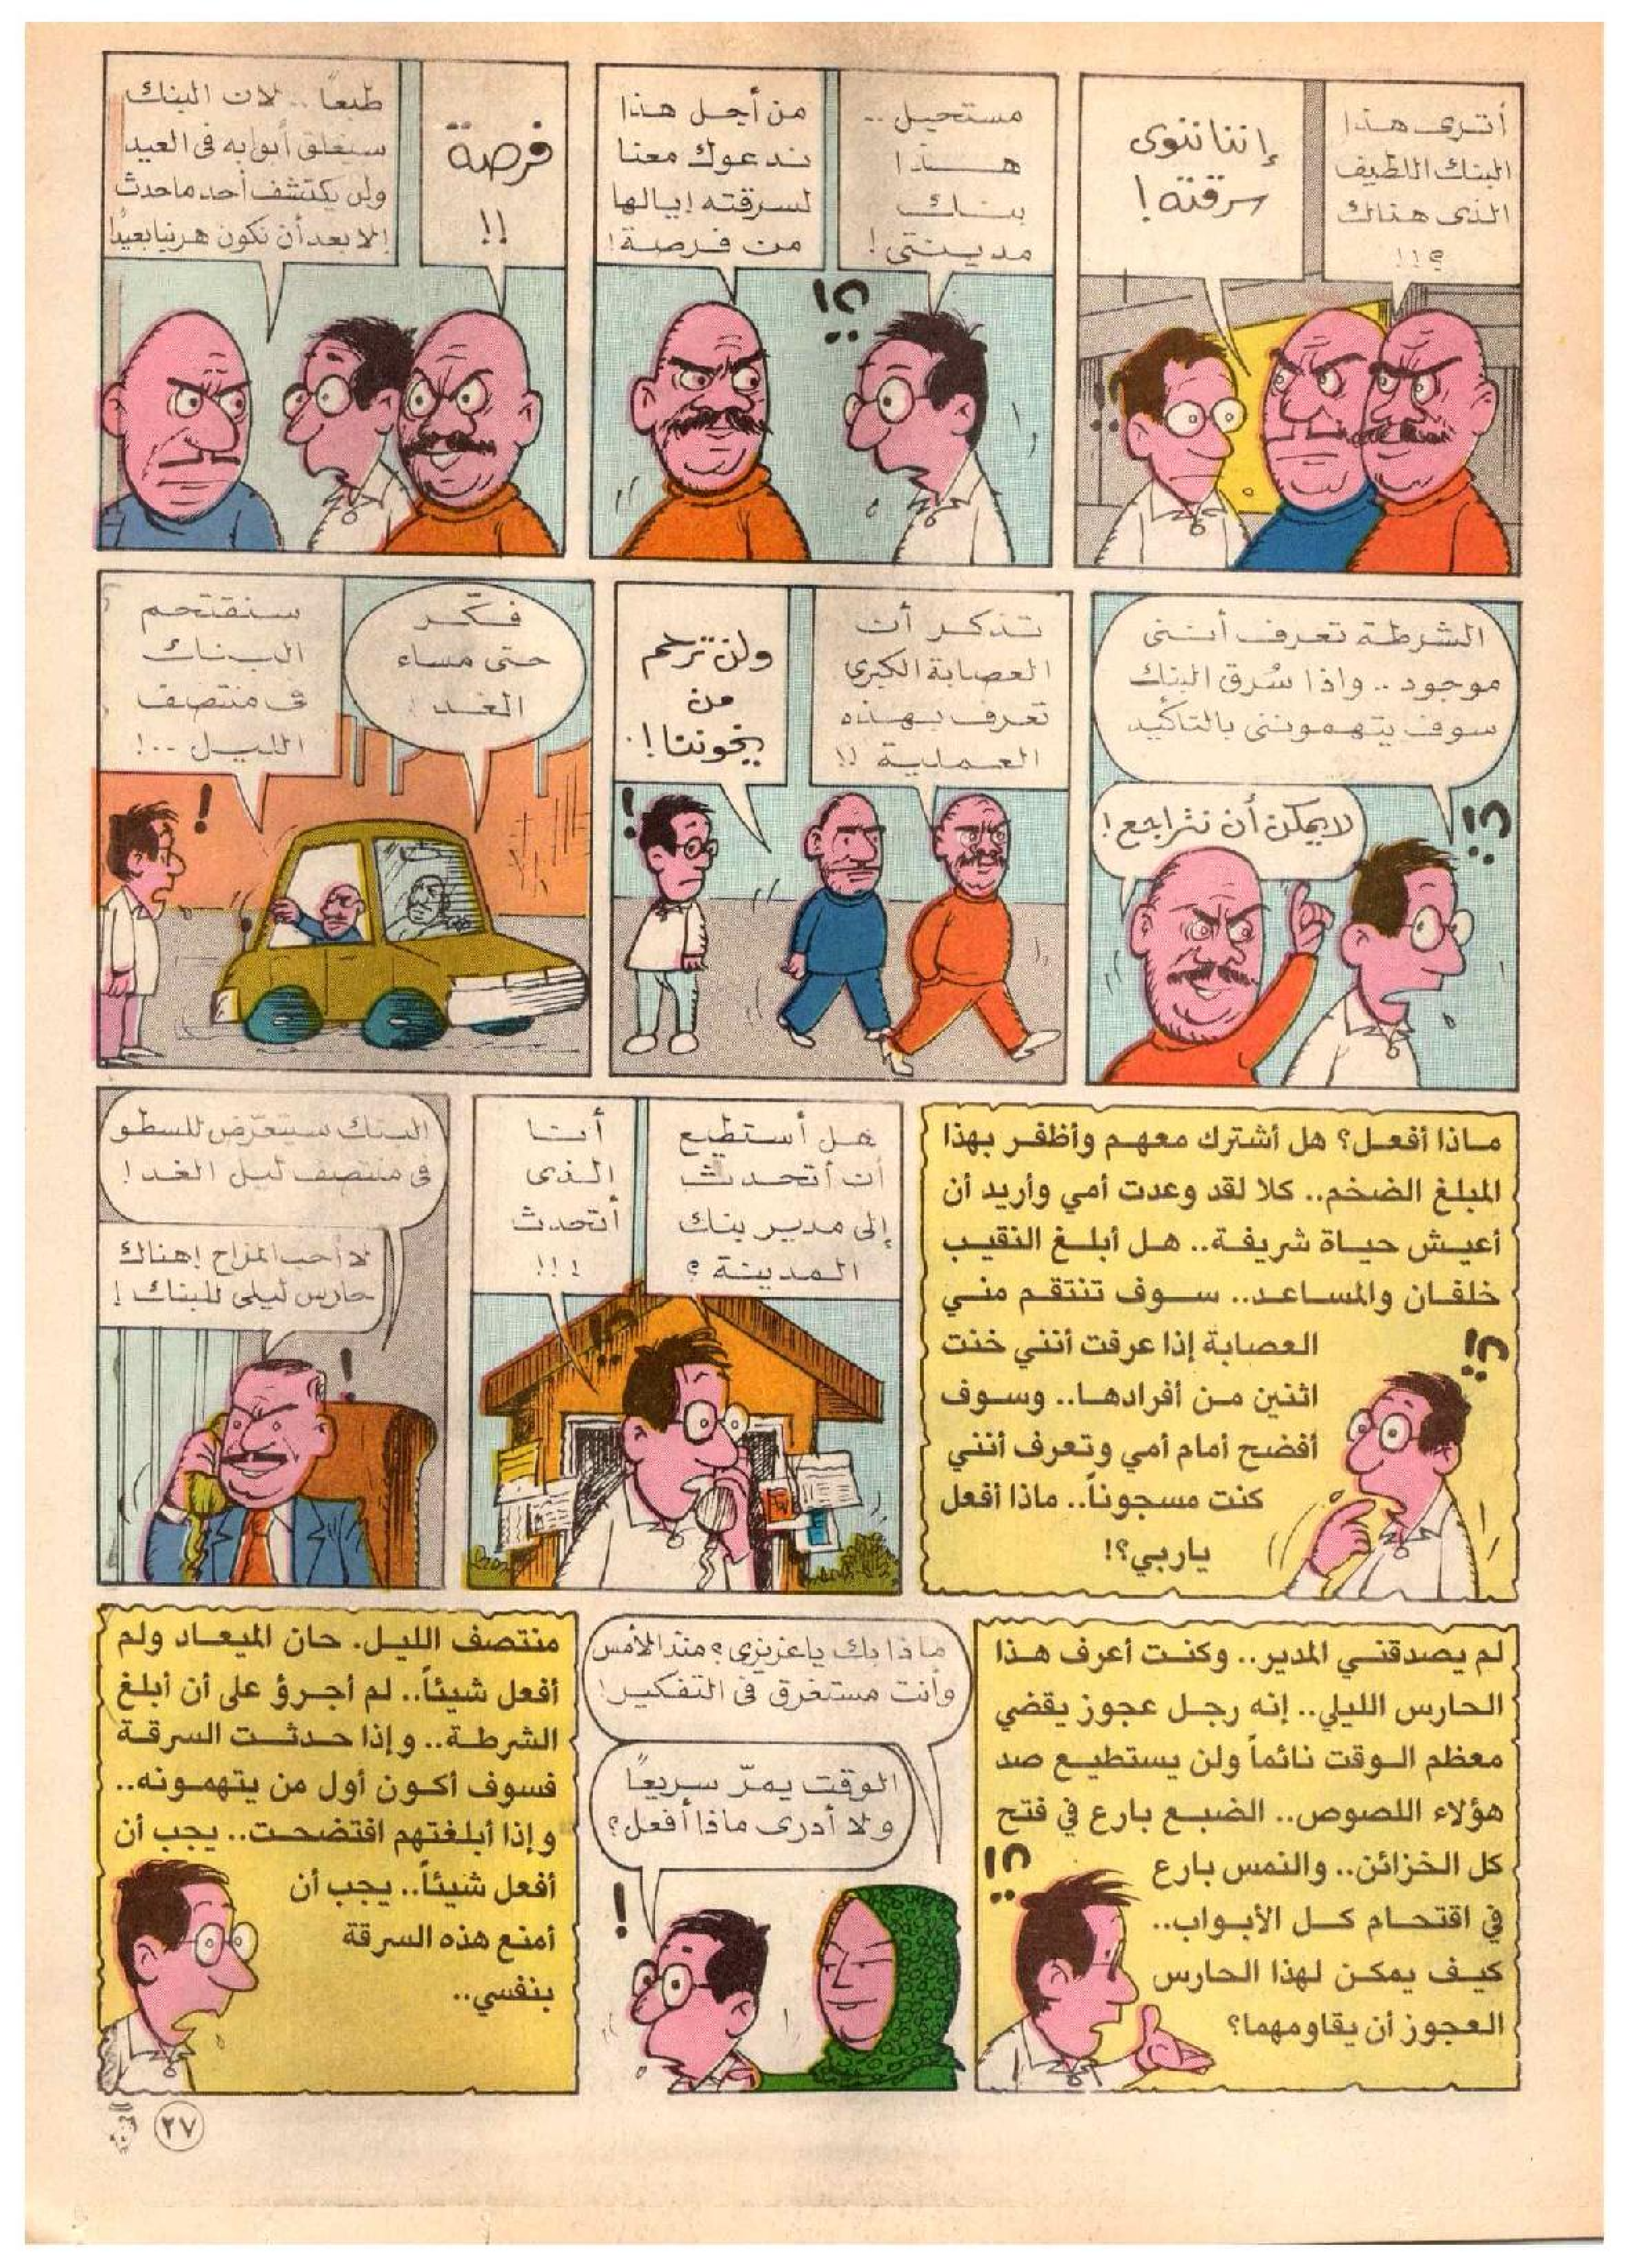 أترى هذا
البنك اللطيف
الذى هنالك
؟!!
إننا ننوى
سرقته!
مستحيل ..
هذا
بنك
مدينتى!
من أجل هذا
ندعوك معنا
لسرقته! يالها
من فرصة!
فرصة
!!
طبعاً .. لان البنك
سيغلق أبوابه فى العيد
ولن يكتشف أحد ماحدث
إلا بعد أن نكون هربنا بعيداً!
الشرطة تعرف أننى
موجود .. واذا سُرق البنك
سوف يتهموننى بالتأكيد
لا يمكن أن نتراجع!
تذكر أن
العصابة الكبرى
تعرف بهذه
العملية !!
ولن ترحم
من
يخوننا!.
فكّر
حتى مساء
الغد!
سنقتحم
البنك
فى منتصف
الليل ..!
ماذا أفعل؟ هل أشترك معهم وأظفر بهذا
المبلغ الضخم.. كلا لقد وعدت أمي وأريد أن
أعيش حياة شريفة.. هل أبلغ النقيب
خلفان والمساعد.. سوف تنتقم مني
العصابة إذا عرفت أنني خنت
اثنين من أفرادها.. وسوف
أفضح أمام أمي وتعرف أنني
كنت مسجوناً.. ماذا أفعل
ياربي؟!
هل أستطيع
أن أتحدث
إلى مدير بنك
المدينة؟
أنا
الذى
أتحدث
!!!
البنك سيتعرّض للسطو
فى منتصف ليل الغد!
لا أحب المزاح! هناك
حارس ليلى للبنك!
لم يصدقني المدير.. وكنت أعرف هذا
الحارس الليلي.. إنه رجل عجوز يقضي
معظم الوقت نائماً ولن يستطيع صد
هؤلاء اللصوص.. الضبع بارع في فتح
كل الخزائن.. والنمس بارع
في اقتحام كل الأبواب..
كيف يمكن لهذا الحارس
العجوز أن يقاومهما؟
ماذا بك ياعزيزى؟ منذ الأمس
وأنت مستغرق فى التفكير!
الوقت يمرّ سريعاً
ولا أدرى ماذا أفعل؟
منتصف الليل. حان الميعاد ولم
أفعل شيئاً.. لم أجرؤ على أن أبلغ
الشرطة.. وإذا حدثت السرقة
فسوف أكون أول من يتهمونه..
وإذا أبلغتهم افتضحت.. يجب أن
أفعل شيئاً.. يجب أن
أمنع هذه السرقة
بنفسي..
٢٧